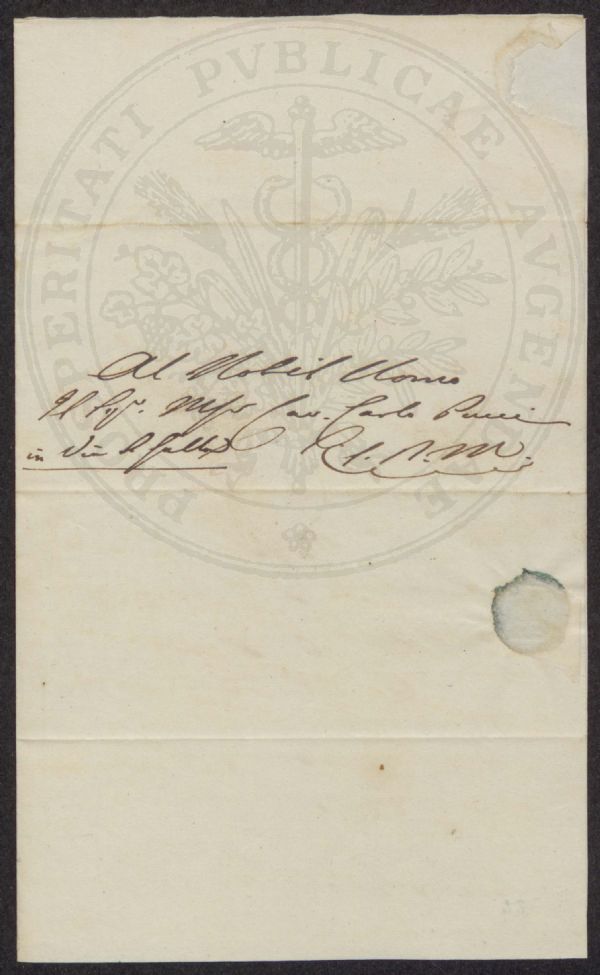 PROSPERITATI PVBLICAE AVGENDAE
Al Nobil Uomo
Il Sigr. Cav. Carlo Pucci
in Via S. Gallo S. P. M.